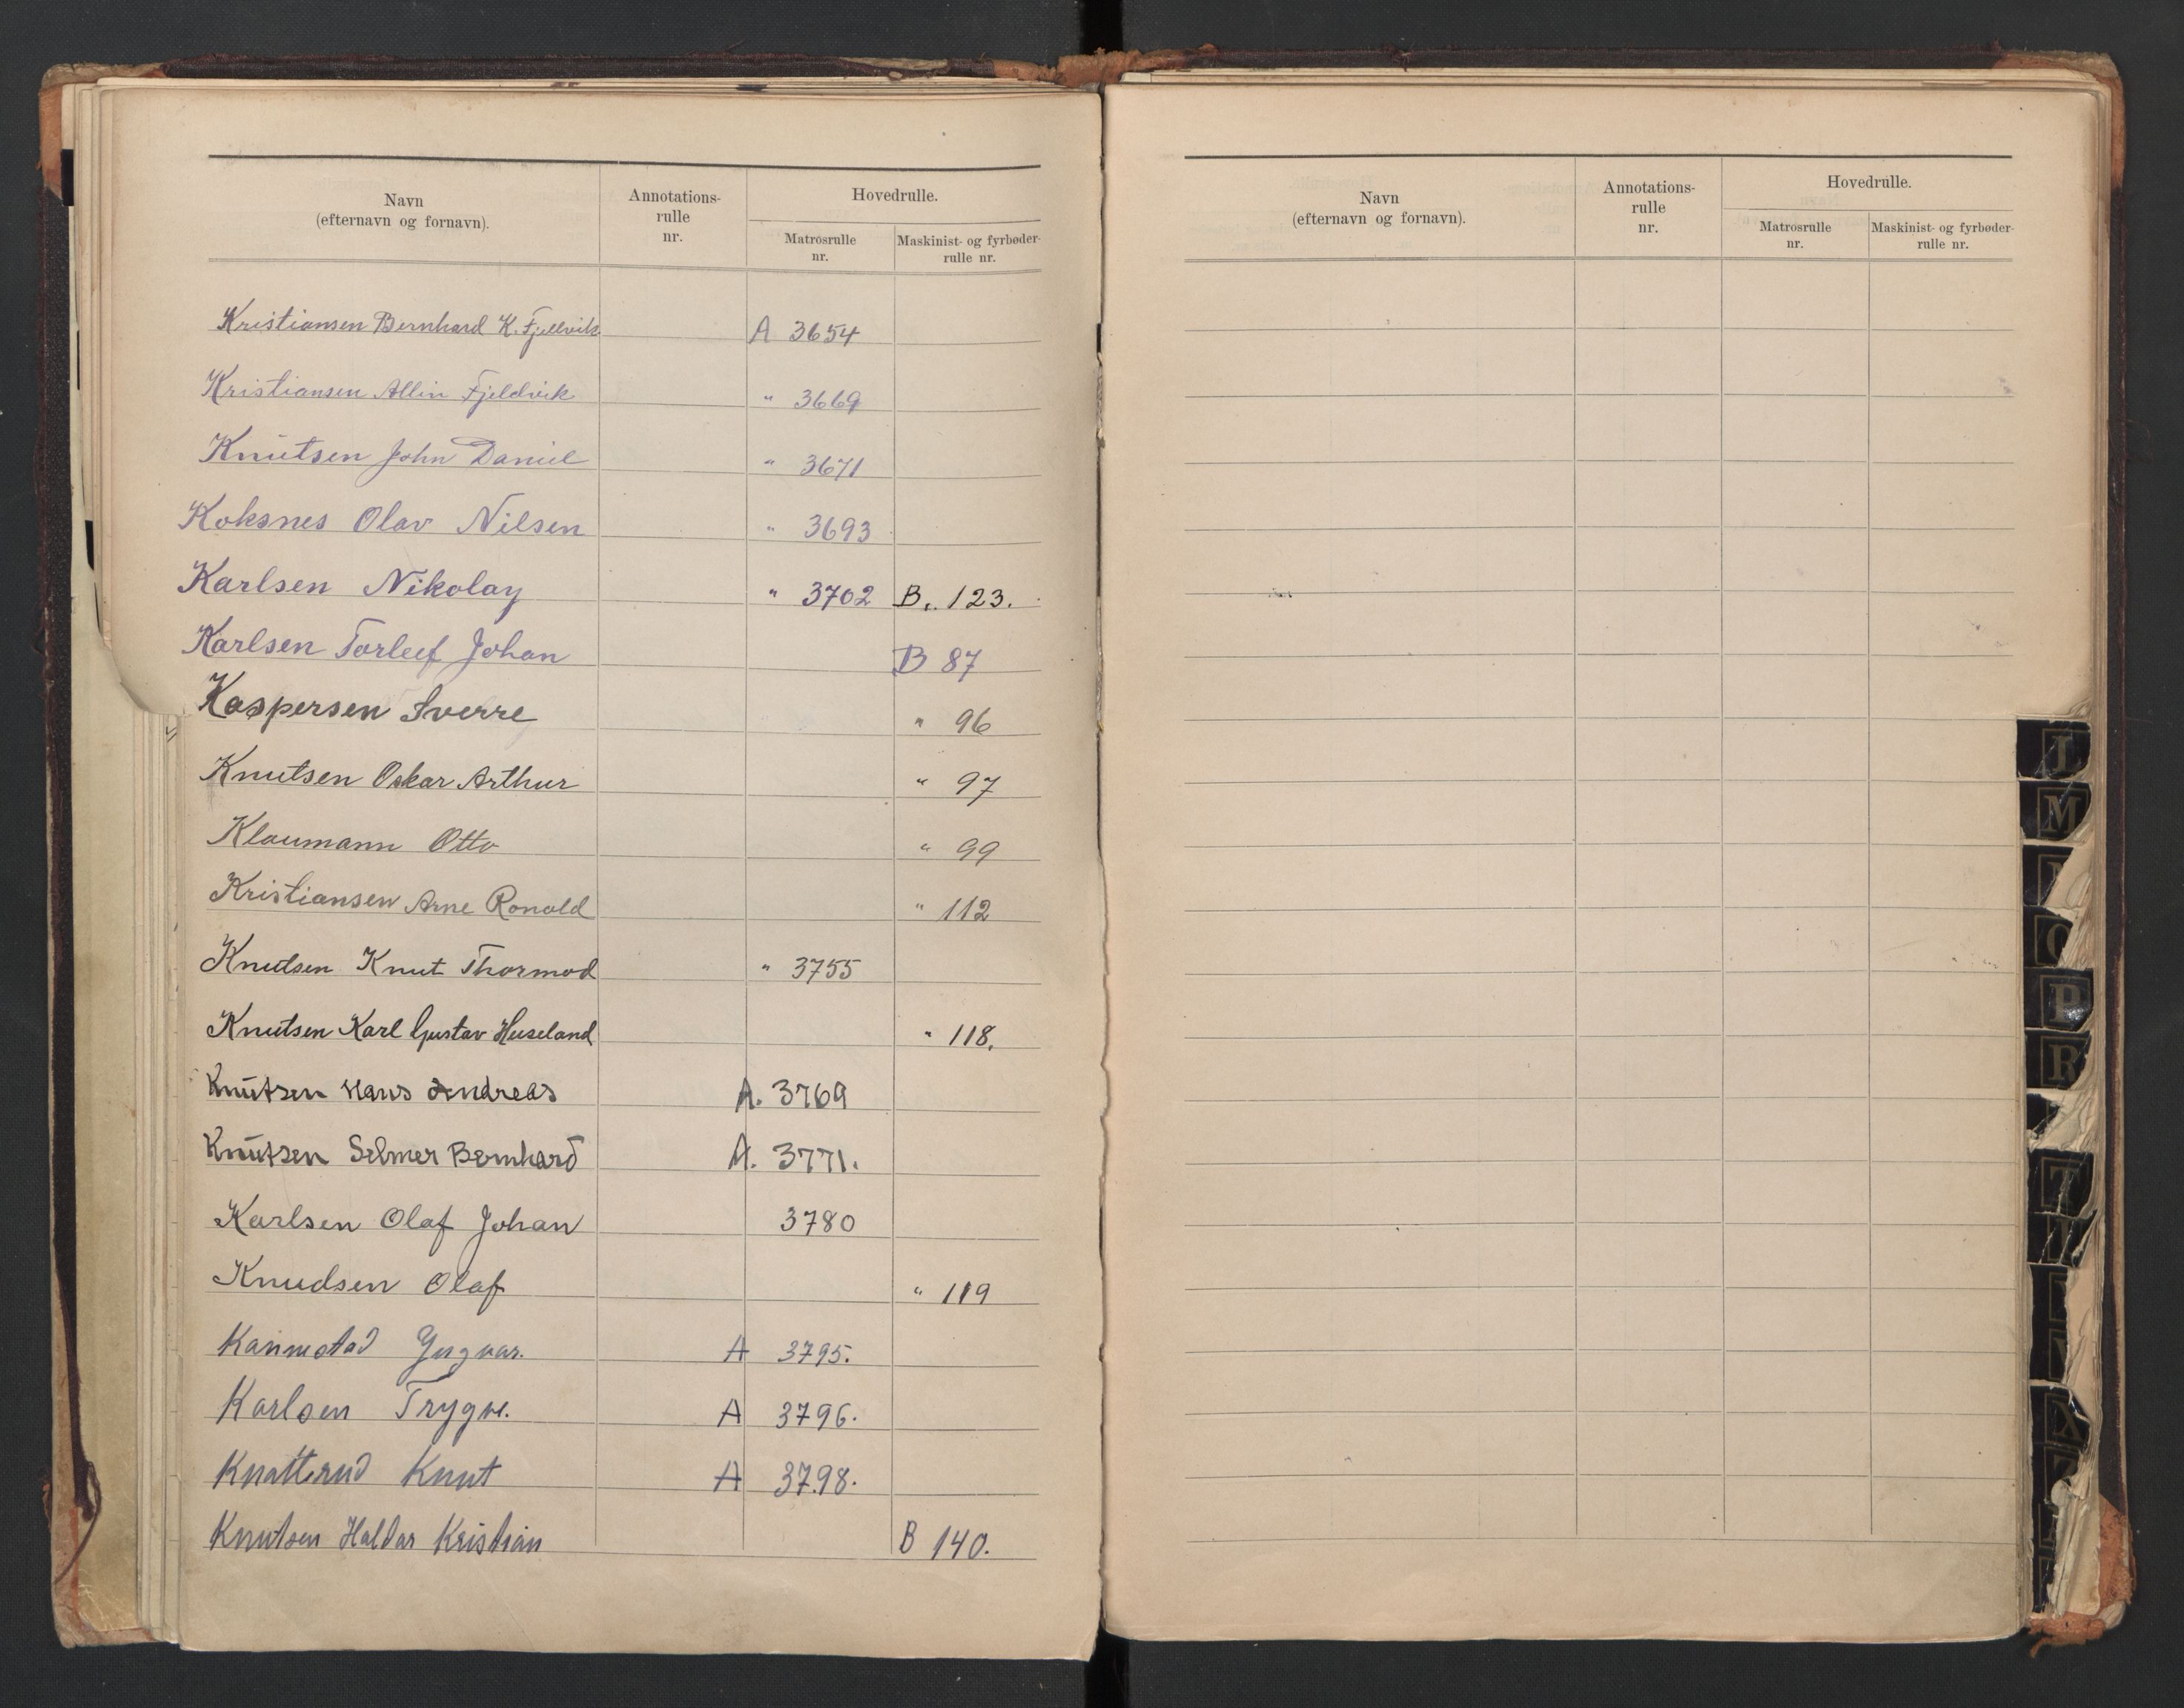 Navn
(efternavn og fornavn).
Annotations-
rulle
nr.
Hovedrulle.
Matrosrulle
nr.
Maskinist- og fyrbøder-
rulle nr.
Kristiansen Bernhard K. Fjellvik A 3654
Kristiansen Allin Fjeldvik " 3669
Knutsen John Daniel " 3671
Koksnes Olav Nilsen " 3693
Karlsen Nikolay " 3702 B. 123.
Karlsen Torleif Johan B 87
Kaspersen Sverre " 96
Knutsen Oskar Arthur " 97
Klaumann Otto " 99
Kristiansen Arne Ronald " 112
Knutsen Knut Thormod " 3755
Knutsen Karl Gustav Huseland " 118.
Knutsen Hans Andreas A. 3769
Knutsen Selmer Bernhard A. 3771.
Karlsen Olaf Johan 3780
Knudsen Olaf " 119
Kannestad Yngvar. A 3795.
Karlsen Trygve. A 3796.
Knatterud Knut A 3798.
Knutsen Haldar Kristian B 140.
Navn
(efternavn og fornavn).
Annotations-
rulle
nr.
Hovedrulle.
Matrosrulle
nr.
Maskinist- og fyrbøder-
rulle nr.
M
P
R
T
X